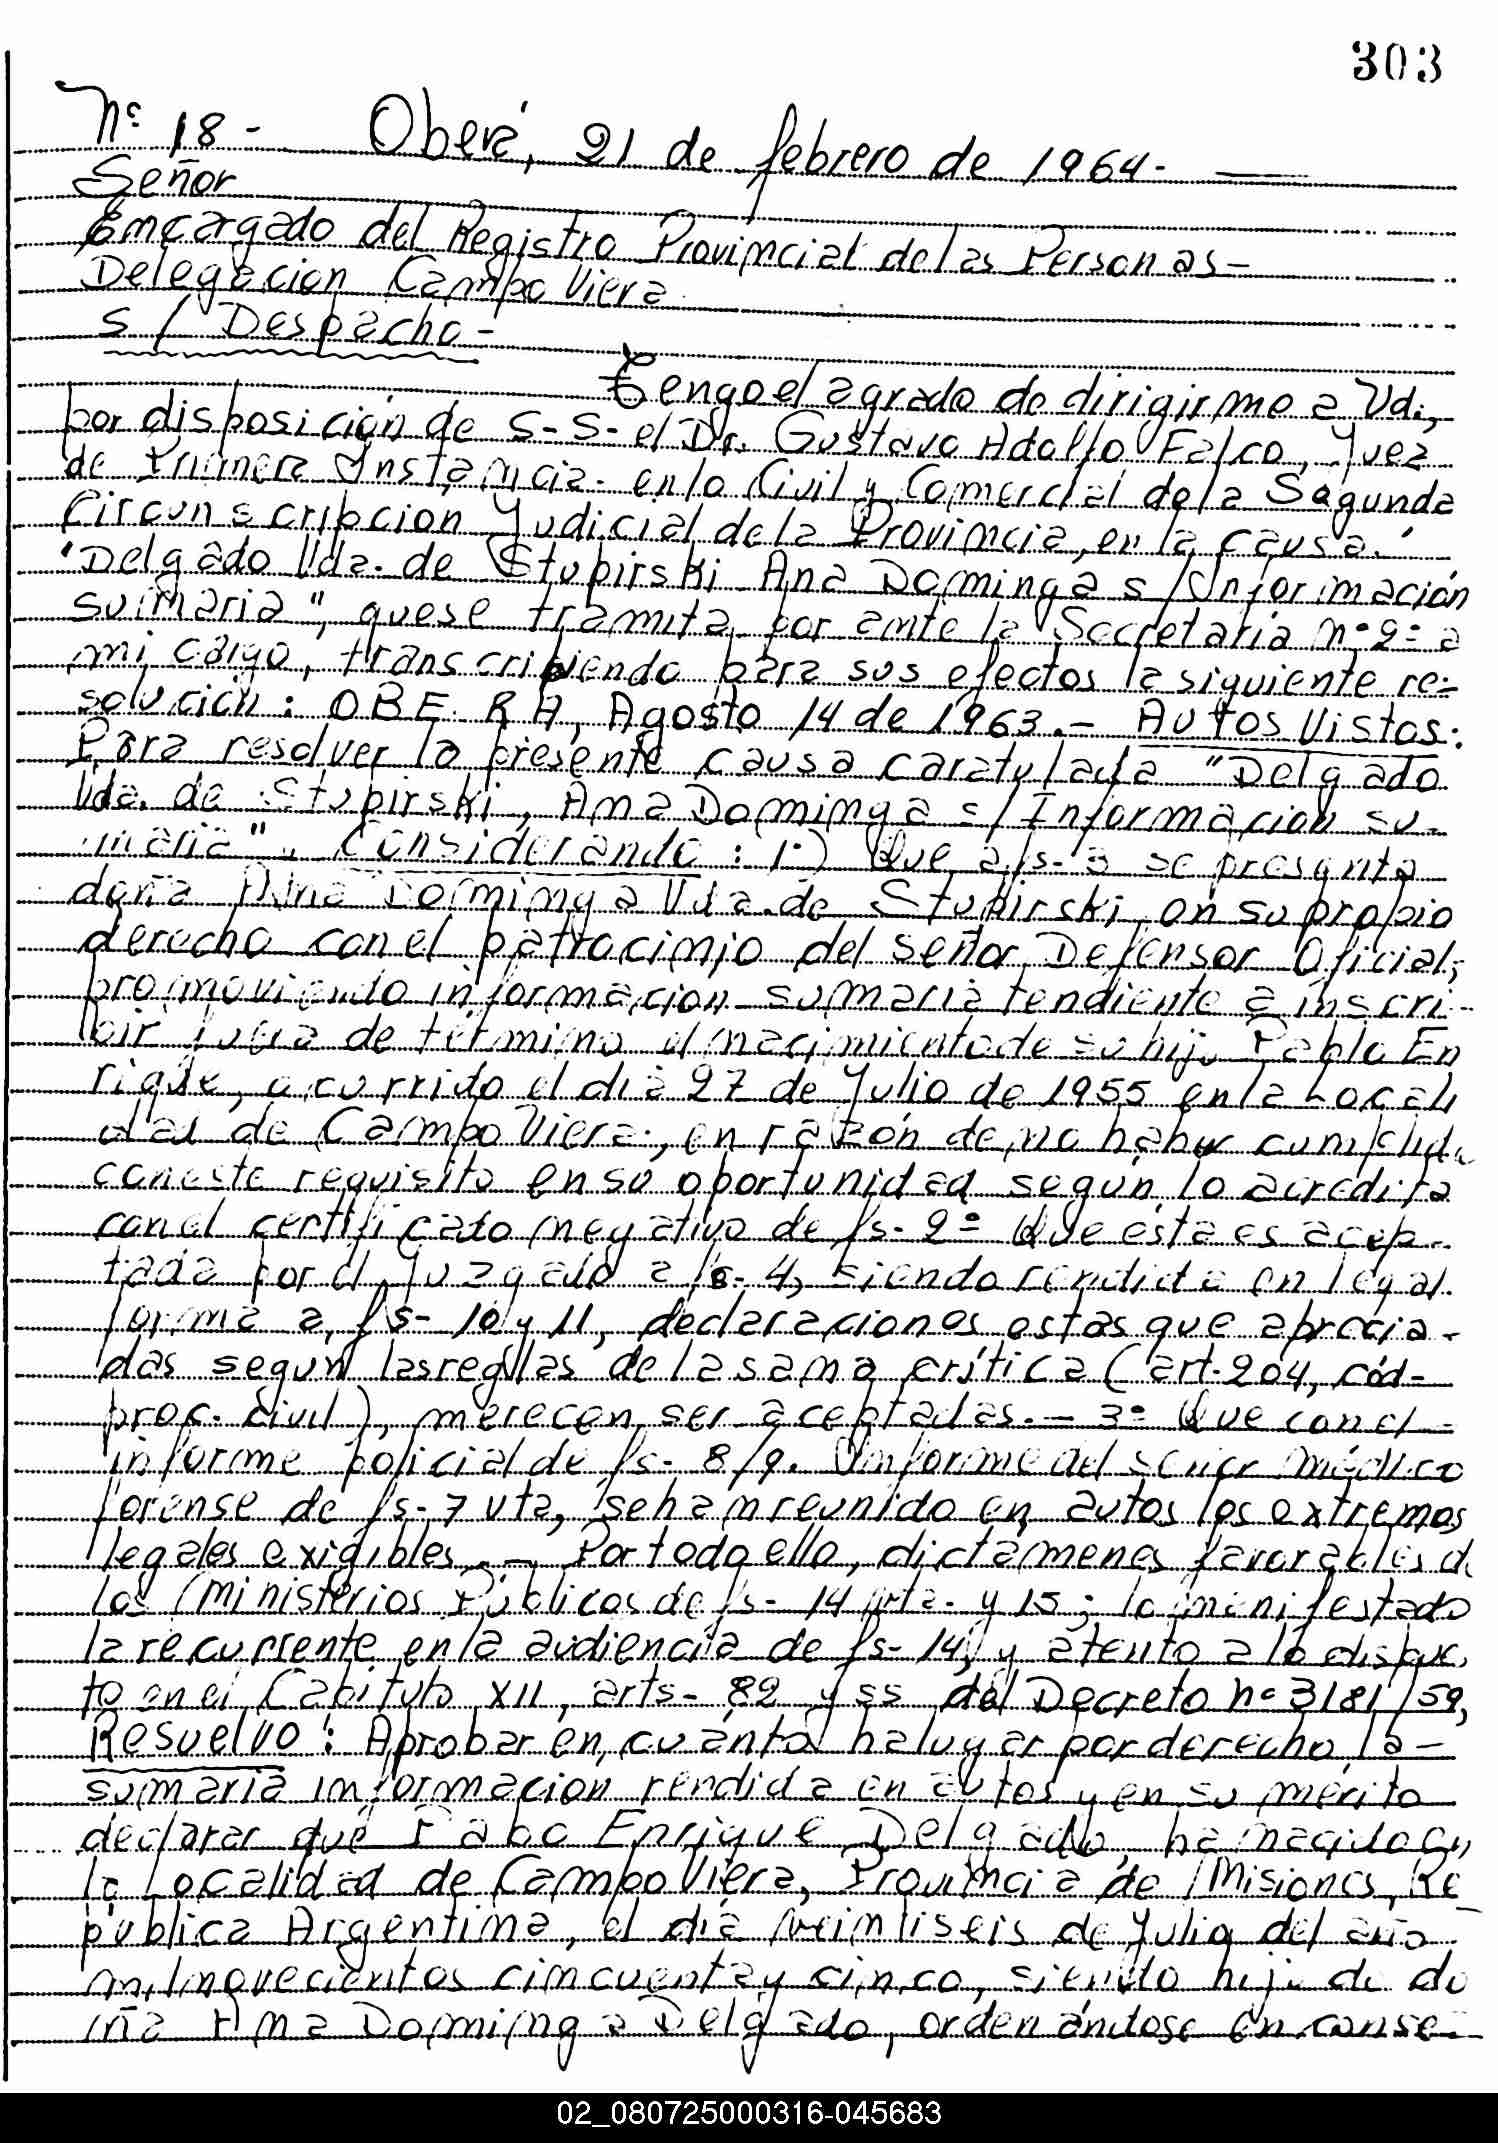 303
Nº 18- Oberá, 21 de febrero de 1964.-
Señor
Encargado del Registro Provincial de las Personas-
Delegacion Campo Viera
S / Despacho-
Tengo el agrado de dirigirme a Vd.,
por disposición de S-S- el Dr. Gustavo Adolfo Falco, Juez
de Primera Instancia- en lo Civil y Comercial de la Segunda
Circunscripcion Judicial de la Provincia, en la causa.
"Delgado Vda. de Stupirski Ana Dominga s/Información
sumaria", que se tramita por ante la Secretaría nº 2º a
mi cargo, transcribiendo para sus efectos la siguiente re-
solución: OBERA, Agosto 14 de 1963.- Autos Vistos:
Para resolver la presente causa caratulada "Delgado
Vda. de Stupirski, Ana Dominga s/Informacion su-
maria". Considerando: 1º) Que a fs- 3 se presenta
doña Ana Dominga Vda. de Stupirski, en su propio
derecho con el patrocinio del señor Defensor Oficial,
promoviendo informacion sumaria tendiente a inscri-
bir fuera de término el nacimiento de su hijo Pablo En
rique, ocurrido el día 27 de Julio de 1955 en la Locali
dad de Campo Viera, en razón de no haber cumplido
con este requisito en su oportunidad según lo acredita
con el certificato negativo de fs- 2º Que ésta es acep-
tada por el Juzgado a fs- 4, siendo rendida en legal
forma a fs- 10 y 11, declaraciones estas que aprecia-
das según las reglas de la sana crítica (art. 204, cód-
proc. civil), merecen ser aceptadas.- 3º Que con el-
informe policial de fs- 8/9. Informe del señor médico
forense de fs- 7 vta, se han reunido en autos los extremos
legales exigibles.- Por todo ello, dictámenes favorables de
los Ministerios Públicos de fs- 14 vta- y 15; lo manifestado
la recurrente en la audiencia de fs- 14, y atento a lo dispues
to en el Capítulo XII, arts- 82 y ss del Decreto nº 3181/59,
Resuelvo: Aprobar en cuánto ha lugar por derecho la-
sumaria informacion rendida en autos y en su mérito
declarar que Pabo Enrique Delgado, ha nacido en
la Localidad de Campo Viera, Provincia de Misiones, Re
publica Argentina, el día veintiseis de Julio del año
mil novecientos cincuenta y cinco, siendo hijo de do
ña Ana Dominga Delgado, ordenándose en conse-
02_080725000316-045683